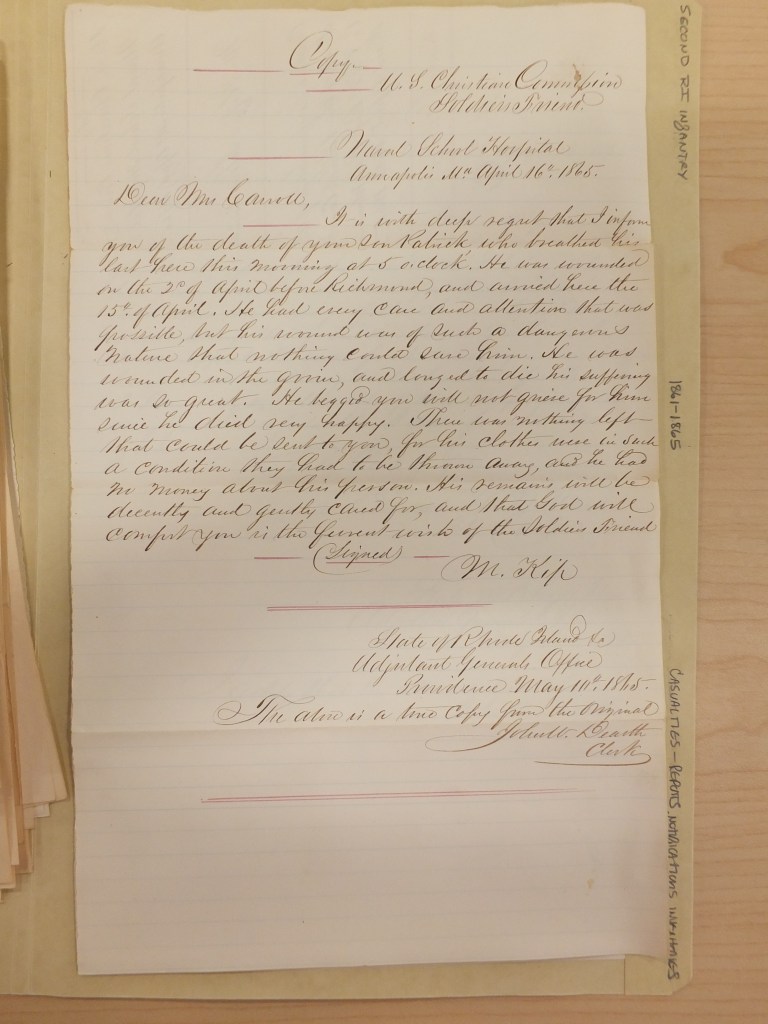 Copy.
U. S. Christian Commission
Soldiers Friend.
Naval School Hospital
Annapolis Md April 16th 1865.
Dear Mrs Carroll,
It is with deep regret that I inform
you of the death of your son Patrick, who breathed his
last here this morning at 5 oclock. He was wounded
on the 2d of April before Richmond, and arrived here the
15th of April. He had every care and attention that was
possible, but his wound was of such a dangerous
nature that nothing could save him. He was
wounded in the groin, and longed to die his suffering
was so great. He begged you will not grieve for him
since he died very happy. There was nothing left
that could be sent to you, for his clothes were in such
a condition they had to be thrown away, and he had
no money about his person. His remains will be
decently and gently cared for, and that God will
comfort you is the fervent wish of the Soldiers Friend
(Signed)
M. Kip
State of Rhode Island &c
Adjutant Generals Office
Providence May 11th 1865.
The above is a true copy from the original
Dearth
Clerk
SECOND RI INFANTRY
1861-1865
CASUALTIES - REPORTS, NOTIFICATIONS